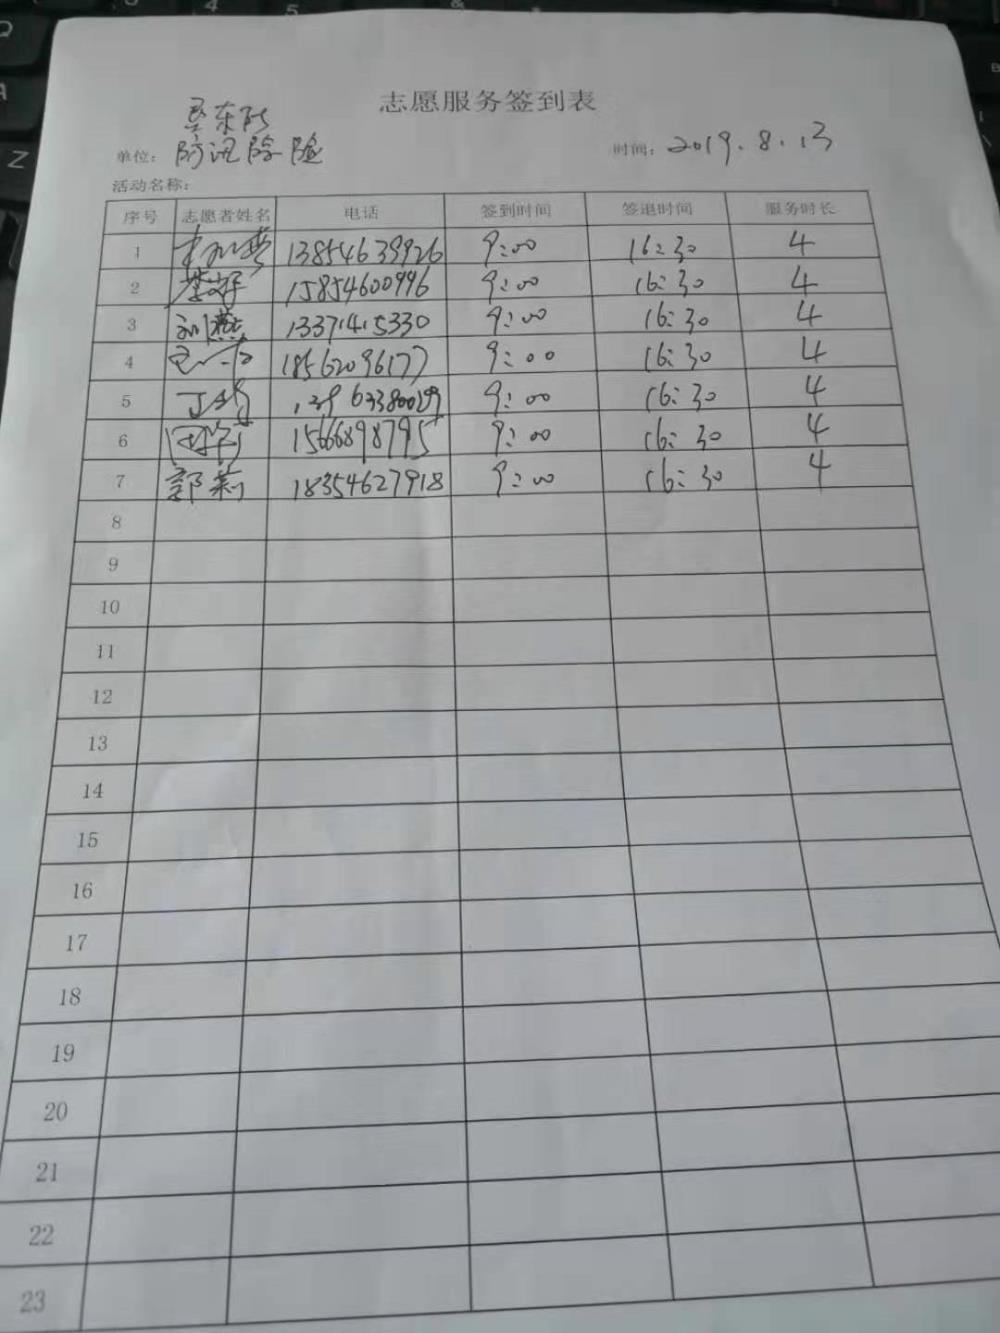 志愿服务签到表
垦东队
单位： 防汛除险 时间：2019.8.13
活动名称：
序号 志愿者姓名 电话 签到时间 签退时间 服务时长
1 13854639926 9:00 16:30 4
2 15854600996 9:00 16:30 4
3 刘燕 13371415330 9:00 16:30 4
4 18562096177 9:00 16:30 4
5 9:00 16:30 4
6 15666898795 9:00 16:30 4
7 郭莉 18354627918 9:00 16:30 4
8
9
10
11
12
13
14
15
16
17
18
19
20
21
22
23